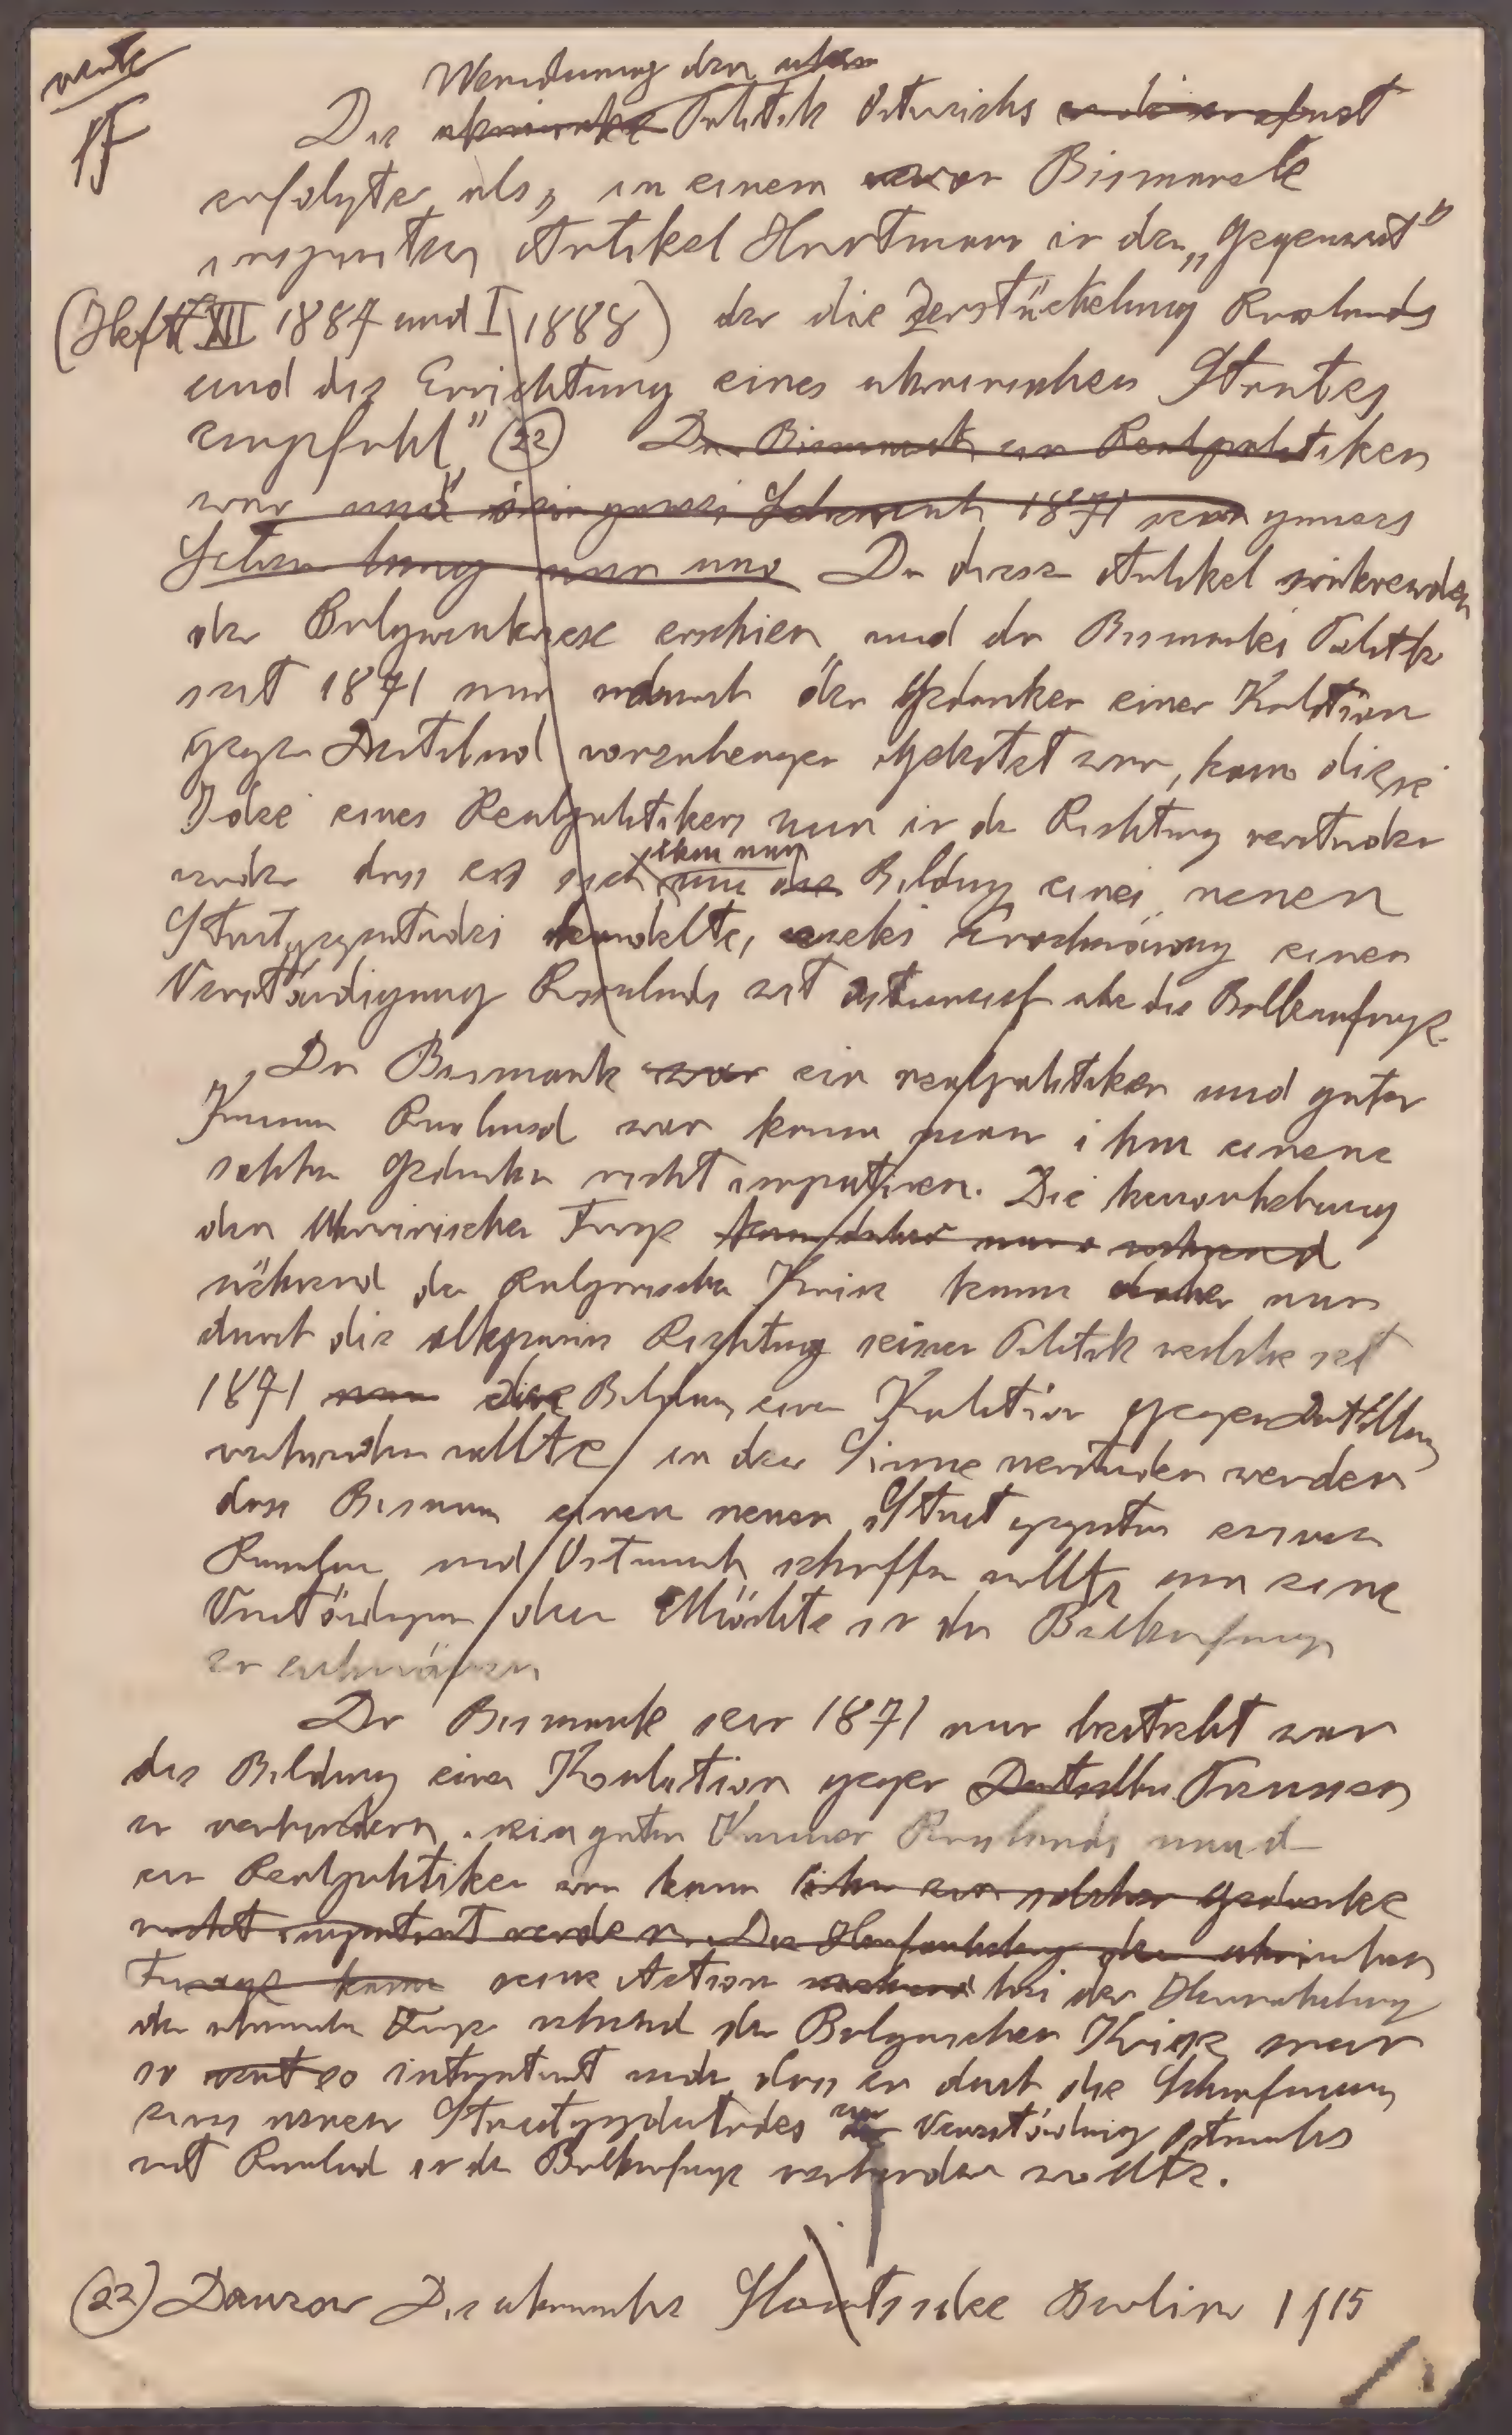 Wendung der
Die Politik Österreichs
erfolgte als, in einem von Bismarck
inspirierten Artikel Hartmann in der „Gegenwart"
(Heft XII 1887 und I 1888) der die Zerstückelung Russlands
und die Errichtung eines ukrainischen Staates
empfahl" (22) Da Bismarck ein Realpolitiker
war und 1871
Da dieser Artikel während
der Bulgarenkrise erschien und da Bismarcks Politik
seit 1871 nur durch den Gedanken einer Koalition
gegen Deutschland vorzubeugen geleitet war, kann diese
Idee eines Realpolitikers nur in der Richtung verstanden
ihm nur
werden dass es sich um die Bildung eines neuen
Staatsgegensatzes handelte, zwecks Erschwerung einer
Verständigung Russlands mit Österreich über die Balkanfrage.
Da Bismarck war ein realpolitiker und guter
Kenner Russland war kann man ihm einen
solchen Gedanken nicht imputieren. Die hervorhebung
der Ukrainischen Frage kann daher nur während
während der Bulgarischen Krise kann daher nur
durch die allgemeine Richtung seiner Politik welche seit
1871 nur die Bildung einer Koalition gegen Deutschland
verhindern wollte in dem Sinne verstanden werden
dass Bismarck einen neuen Staat gegensatz zwischen
Russland und Österreich schaffen wollte um eine
Verständigung der Mächte in der Balkanfrage
zu erschweren
Da Bismarck seit 1871 nur bestrebt war
die Bildung einer Koalition gegen Deutschland Preussen
zu verhindern, ein guter Kenner Russlands und
ein Realpolitiker war kann ihm ein solcher Gedanke
nicht imputiert werden. Die Hervorhebung der ukrainischen
Frage kann seine Aktion während bei der Hervorhebung
der ukrainischen Frage während der Bulgarischen Krise nur
so interpretiert werden dass er durch die Schaffung
eines neuen Staatsgegensatzes die Verständigung Österreichs
mit Russland in der Balkanfrage verhindern wollte.
(22) Die ukrainische Staatsidee Berlin 1915